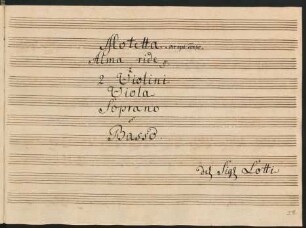 Motetta
Alma ride
à
2 Violini
Viola
Soprano
e
Basso
Del Sigr Lotti